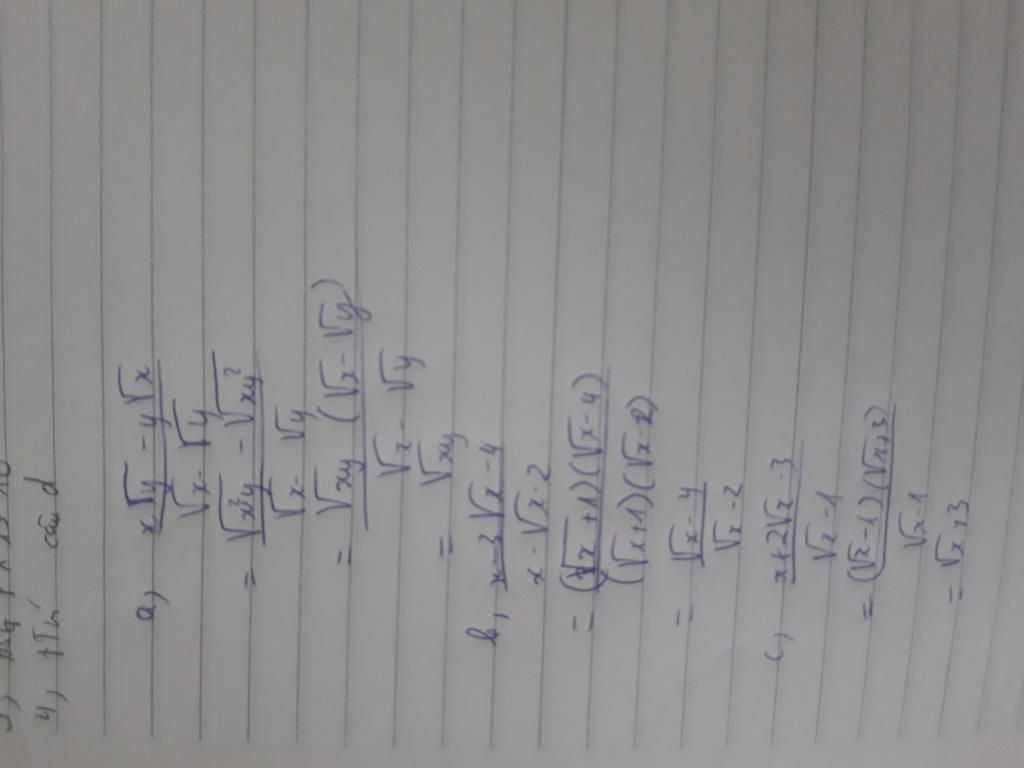 4,
câu d
a, x√y - y√x
√x - √y
= √x²y - √xy²
√x - √y
= √xy (√x - √y)
√x - √y
= √xy
b, x-3√x-4
x-√x-2
= (√x+1)(√x-4)
(√x+1)(√x-2)
= √x-4
√x-2
c, x+2√x-3
√x-1
= (√x-1)(√x+3)
√x-1
= √x+3